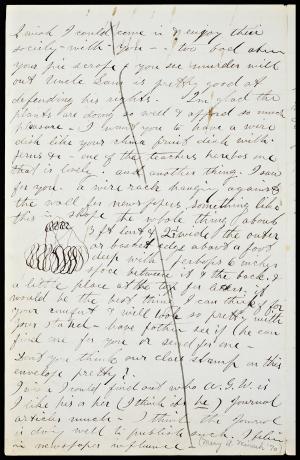 I wish I could come in & enjoy their
society - with - you - - too bad about
your pie scrape, you see murder will
out Uncle Sam is pretty good at
defending his rights. I'm glad the
plants are doing so well & afford so much
pleasure - I want you to have a wire
dish like your china fruit dish with
ferns in - one of the teachers here has one
that is lovely. and another thing I saw
for you. a wire rack hanging against
the wall for newspapers something like
this in shape the whole thing about
3 ft long & 2 wide & the outer
or basket edge about a foot
deep with perhaps 6 inches
space between it & the back &
a little place at the top for
would be the best thing I can think of for
your comfort & will look so pretty with
your stand - have father see if he can
find one for you or send for one -
Don't you think our class stamp on this
envelope pretty?
I wish I could find out who A.G.W. is
I like his or her (I think it's he) Journal
articles much - I think the Journal
is doing well to publish such. I believe
in newspaper influence -